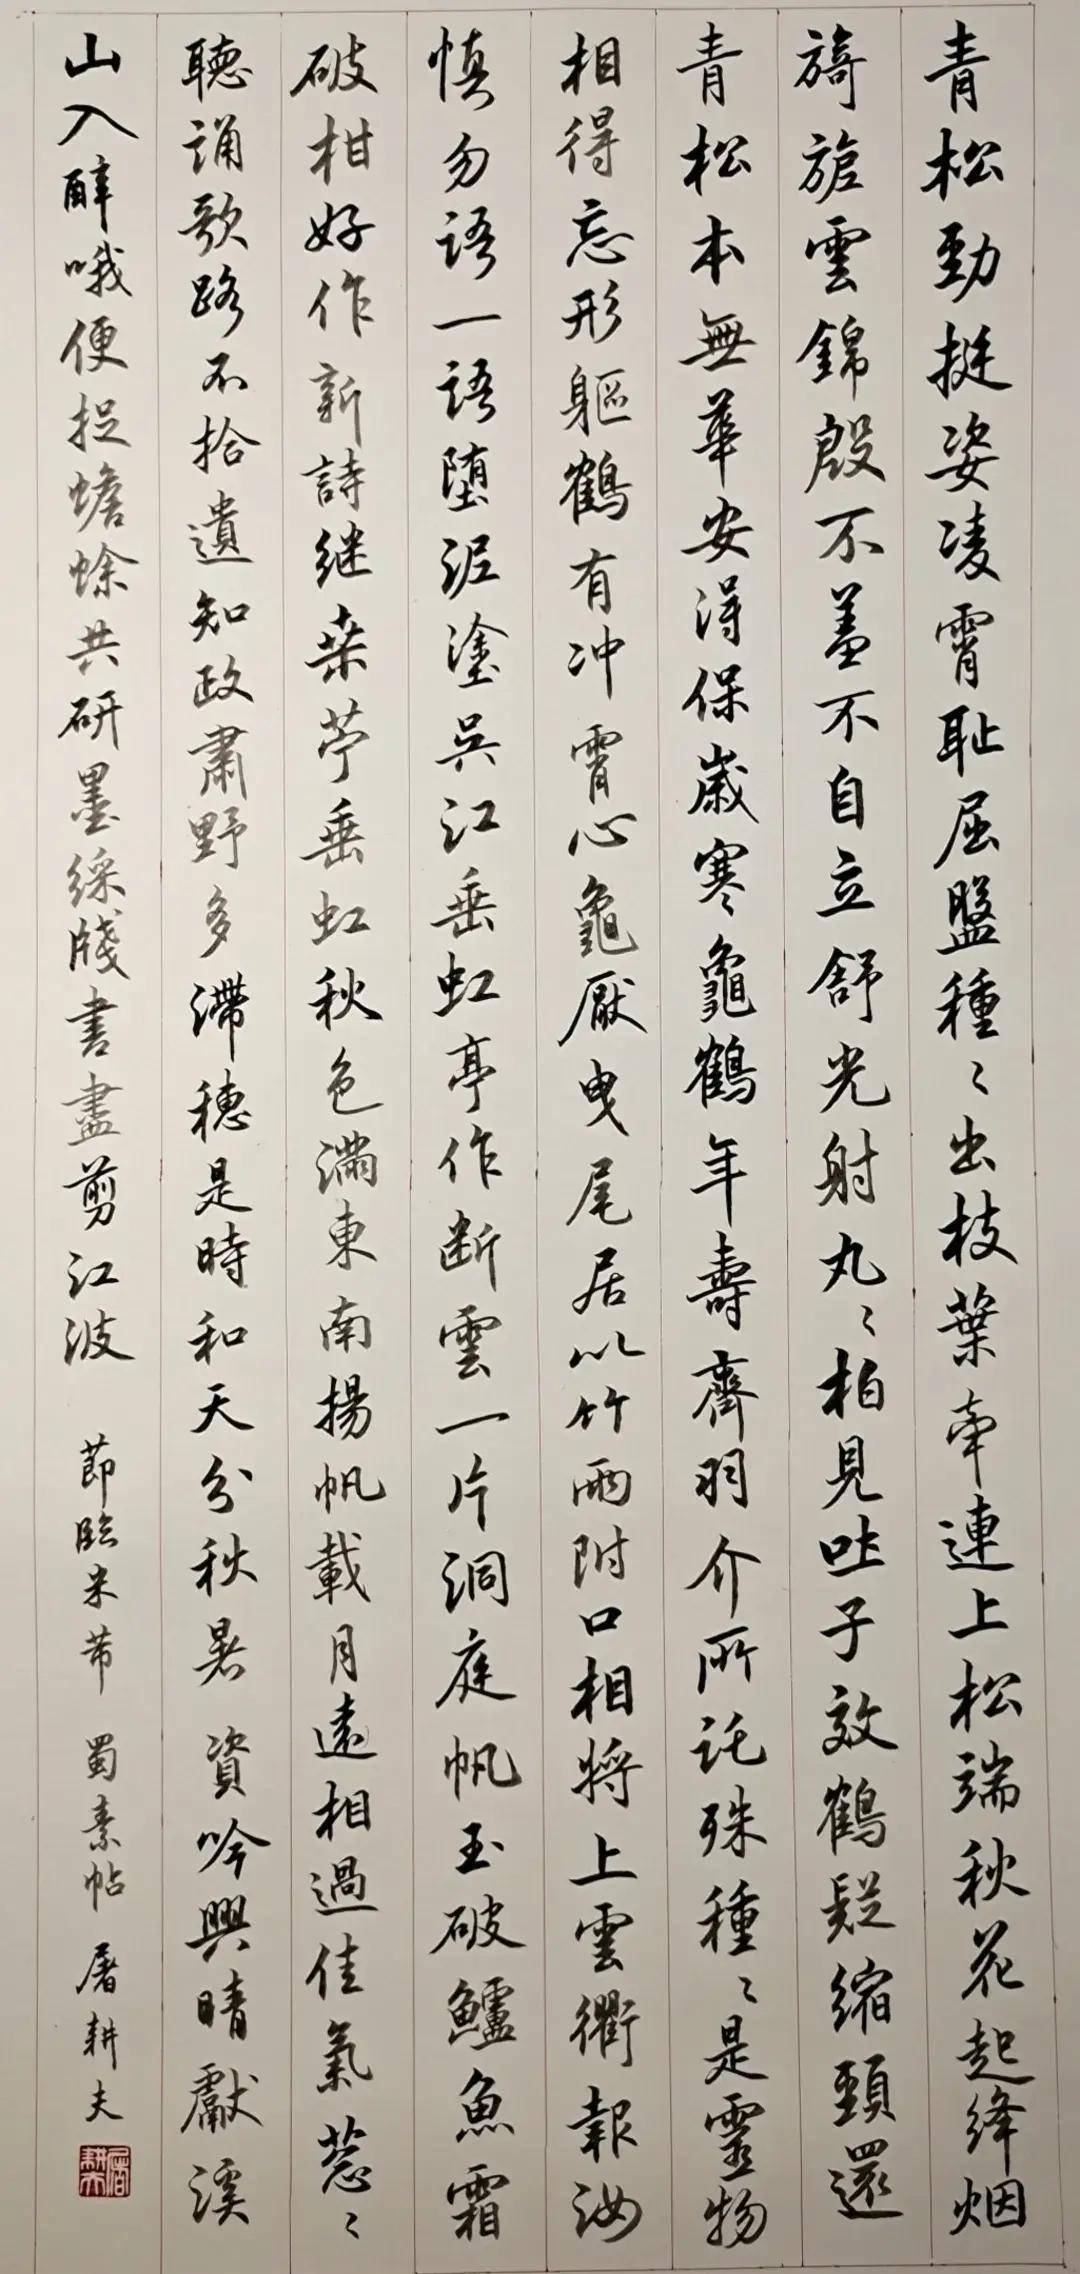 青松勁挺姿凌霄恥屈盤種〻出枝葉牽連上松端秋花起絳烟
旖旎雲錦殷不羞不自立舒光射丸〻柏見吐子效鶴疑縮頸還
青松本無華安得保歲寒龜鶴年壽齊羽介所託殊種〻是靈物
相得忘形軀鶴有冲霄心龜厭曳尾居以竹兩附口相將上雲衢報汝
慎勿語一語墮泥塗吳江垂虹亭作断雲一片洞庭帆玉破鱸魚霜
破柑好作新詩継桑苧垂虹秋色滿東南揚帆載月遠相過佳氣蔥〻
聽誦歌路不拾遺知政肅野多滯穗是時和天分秋暑資吟興晴獻溪
山入醉哦便捉蟾蜍共研墨綵牋書盡剪江波 節臨米芾 蜀素帖 屠耕夫
屠耕夫